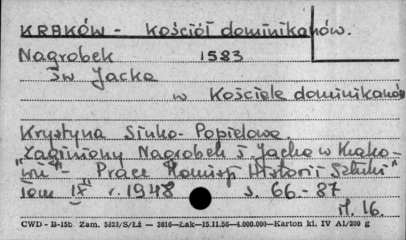 KRAKÓW - Kościół dominikanów.
Nagrobek 1583
Św Jacka
w Kościele dominikanów
Krystyna Sinko-Popielowa.
"Zaginiony Nagrobek ś Jacka w Krako-
wie" - Prace Komisji Historii Sztuki"
tom IX r. 1948 s. 66.-87
il. 16.
CWD - B-15b Zam. 5323/S/Łż — 3016—Łak—15.11.56—4.000.000—Karton kl. IV A1/200 g